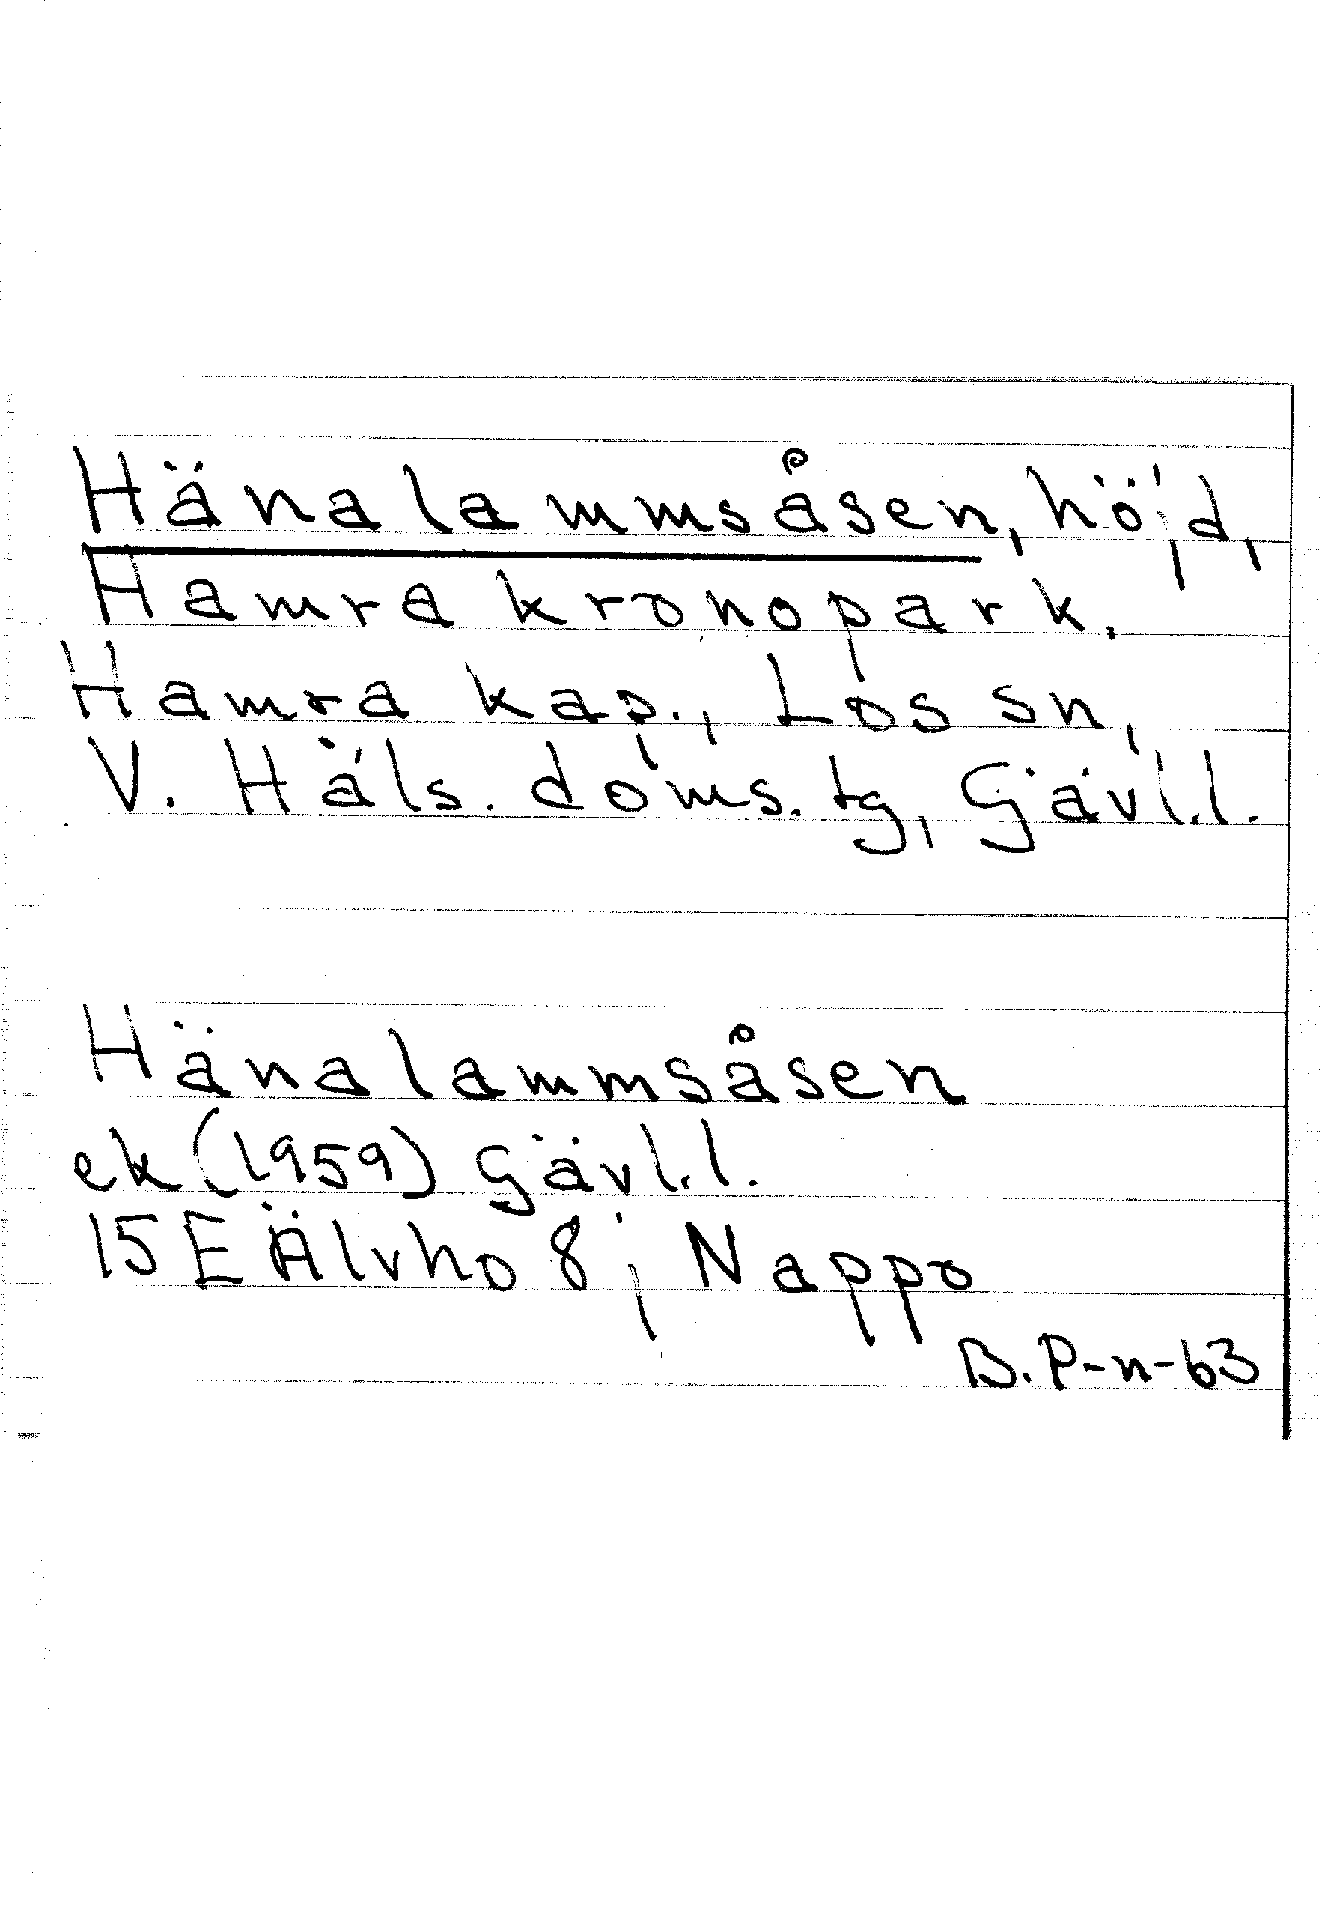 Hänalammsåsen, höjd,
Hamra kronopark.
Hamra kap., Los sn,
V. Häls. doms. tg, Gävl.l.
Hänalammsåsen
ek (1959) Gävl.l.
15E Älvho 8 j Nappo
B.P-n-63